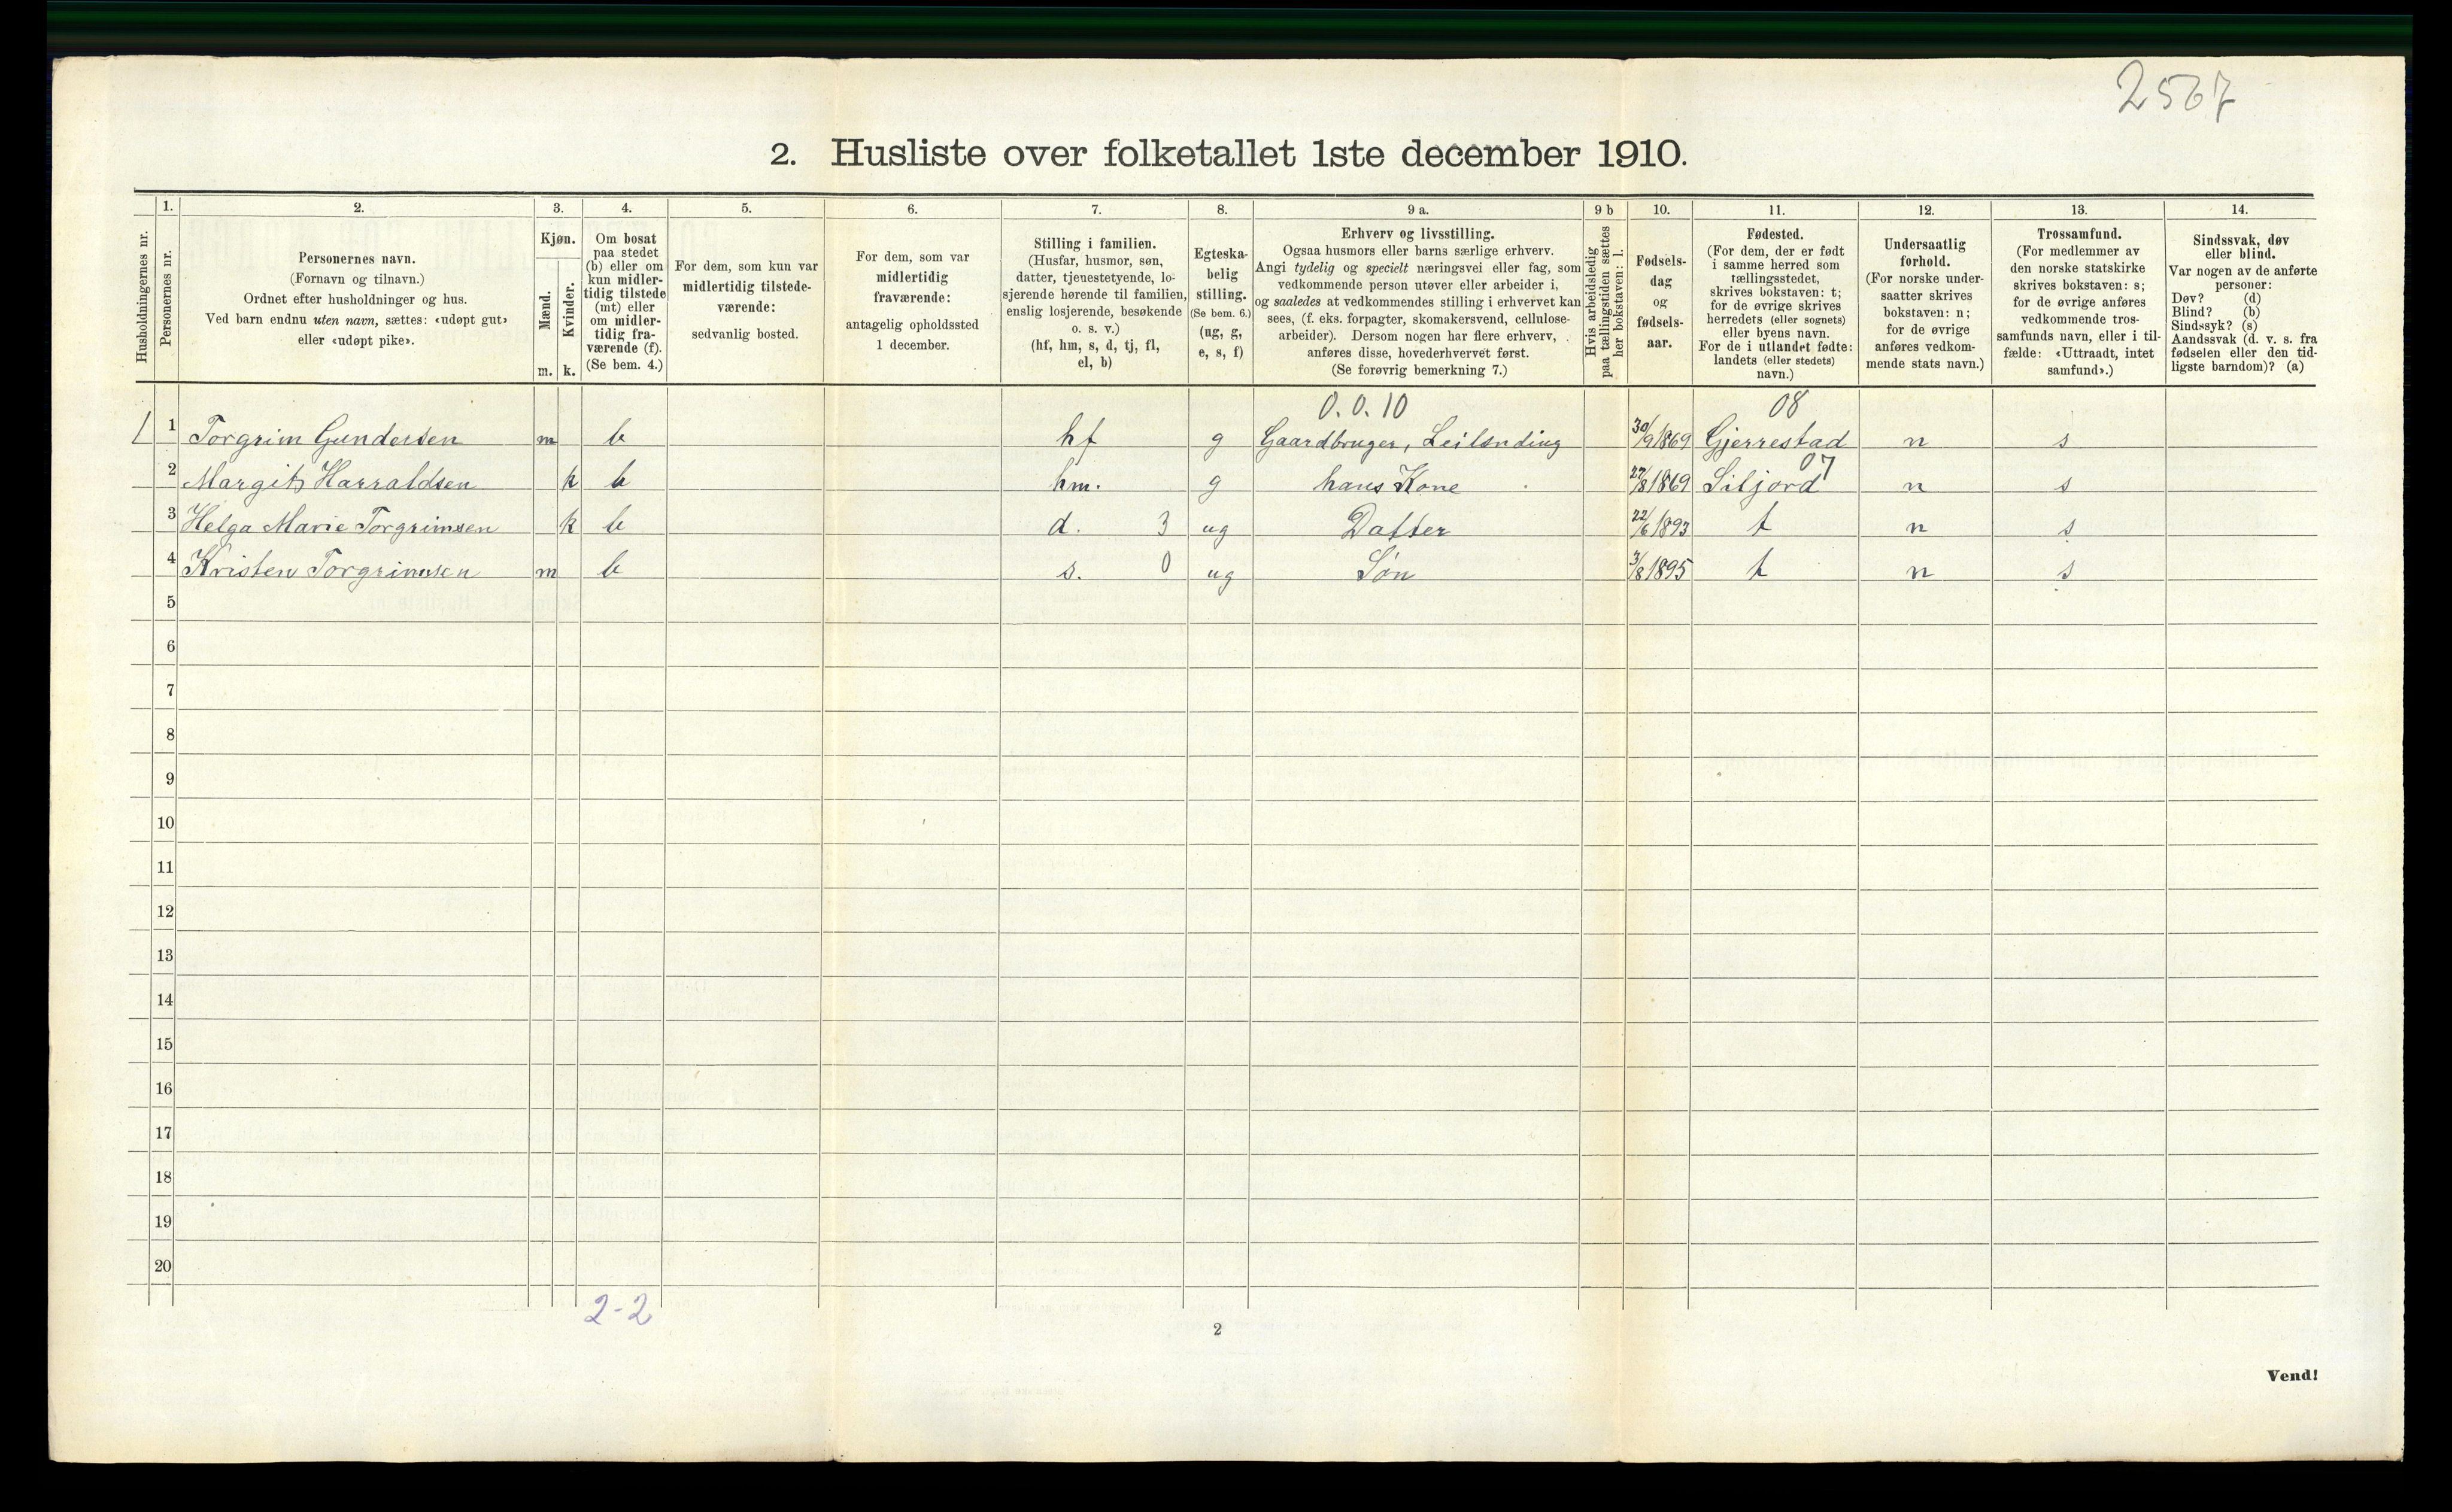 2567
2. Husliste over folketallet 1ste december 1910.
Husholdningernes nr.
1.
Personernes nr.
2.
Personernes navn.
(Fornavn og tilnavn.)
Ordnet efter husholdninger og hus.
Ved barn endnu uten navn, sættes: «udøpt gut»
eller «udøpt pike».
3.
Kjøn.
Mænd.
Kvinder.
m. k.
4.
Om bosat
paa stedet
(b) eller om
kun midler-
tidig tilstede
(mt) eller
om midler-
tidig fra-
værende (f).
(Se bem. 4.)
5.
For dem, som kun var
midlertidig tilstede-
værende:
sedvanlig bosted.
6.
For dem, som var
midlertidig
fraværende:
antagelig opholdssted
1 december.
7.
Stilling i familien.
(Husfar, husmor, søn,
datter, tjenestetyende, lo-
sjerende hørende til familien,
enslig losjerende, besøkende
o. s. v.)
(hf, hm, s, d, tj, fl,
el, b)
8.
Egteska-
belig
stilling.
(Se bem. 6.)
(ug, g,
e, s, f)
9 a.
Erhverv og livsstilling.
Ogsaa husmors eller barns særlige erhverv.
Angi tydelig og specielt næringsvei eller fag, som
vedkommende person utøver eller arbeider i,
og saaledes at vedkommendes stilling i erhvervet kan
sees, (f. eks. forpagter, skomakersvend, cellulose-
arbeider). Dersom nogen har flere erhverv,
anføres disse, hovederhvervet først.
(Se forøvrig bemerkning 7.)
9 b
Hvis arbeidsledig
paa tællingstiden sættes
her bokstaven: l.
10.
Fødsels-
dag
og
fødsels-
aar.
11.
Fødested.
(For dem, der er født
i samme herred som
tællingsstedet,
skrives bokstaven: t;
for de øvrige skrives
herredets (eller sognets)
eller byens navn.
For de i utlandet fødte:
landets (eller stedets)
navn.)
12.
Undersaatlig
forhold.
(For norske under-
saatter skrives
bokstaven: n;
for de øvrige
anføres vedkom-
mende stats navn.)
13.
Trossamfund.
(For medlemmer av
den norske statskirke
skrives bokstaven: s;
for de øvrige anføres
vedkommende tros-
samfunds navn, eller i til-
fælde: «Uttraadt, intet
samfund».)
14.
Sindssvak, døv
eller blind.
Var nogen av de anførte
personer:
Døv? (d)
Blind? (b)
Sindssyk? (s)
Aandssvak (d. v. s. fra
fødselen eller den tid-
ligste barndom)? (a)
0.0.10 08
1 Torgrim Gundersen m b hf g Gaardbruger, Leilending 30/9 1869 Gjerrestad n s
07
2 Margit Harraldsen k b hm. g hans Kone 27/8 1869 Siljord n s
3 Helga Marie Torgrimsen k b d. 3 ug Datter 22/6 1893 t n s
4 Kristen Torgrimsen m b s. 0 ug Søn 3/8 1895 t n s
5
6
7
8
9
10
11
12
13
14
15
16
17
18
19
20
2-2
2
Vend!